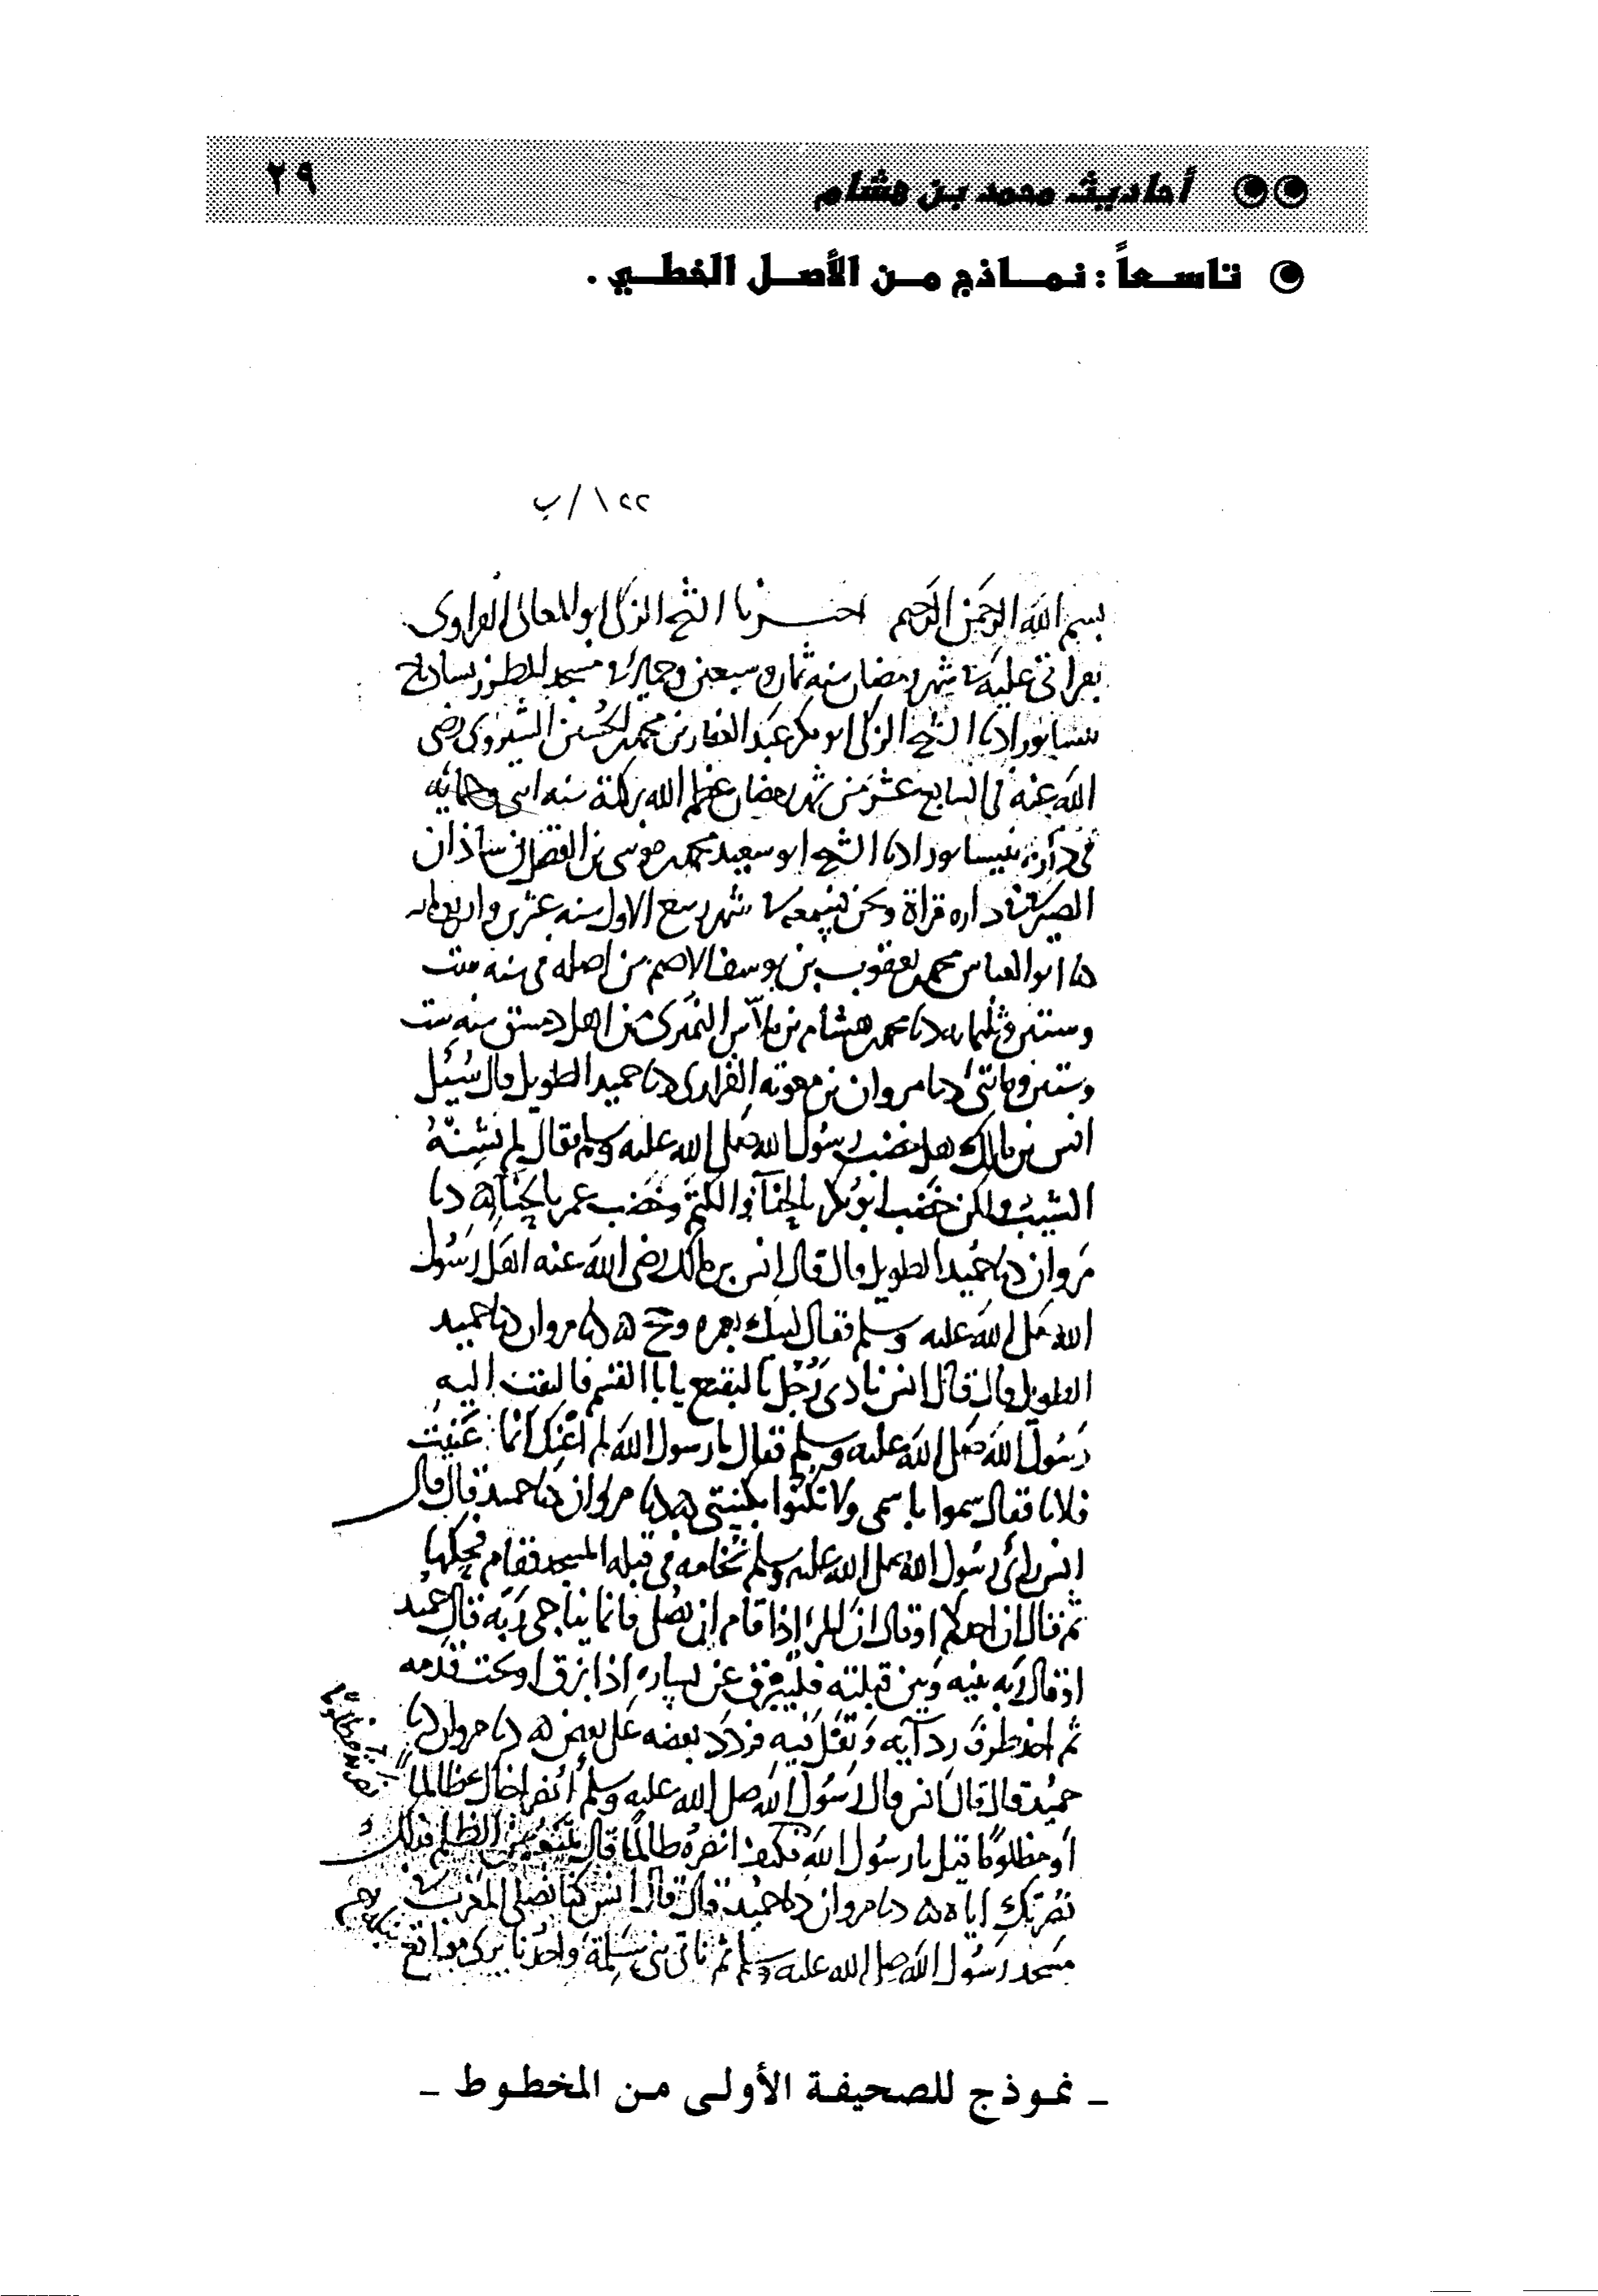 أحاديث محمد بن هشام
٢٩
تاسعاً : نماذج من الأصل الخطي .
١٢٢/ب
بسم الله الرحمن الرحيم اخبرنا الشيخ الزكي ابو المعالي الفراوي
بقراتي عليه في شهر رمضان سنه ثمان وسبعين وخمسمائة في مسجد المطرز
نيسابور انا الشيخ الزكي ابو بكر عبد الغفار بن محمد بن الحسين الشيروي رضي
الله عنه في السابع عشر من شهر رمضان عظم الله بركته سنه اثني وخمسمايه
في داره بنيسابور انا الشيخ ابو سعيد محمد بن موسى بن الفضل بن شاذان
الصيرفي في داره قراة ونحن نسمع في شهر ربيع الاول سنه عشرين واربعمايه
نا ابو العباس محمد بن يعقوب بن يوسف الاصم من اصله في سنه ست
وستين وثلثمايه دنا محمد بن هشام بن ملاس النميري من اهل دمشق سنه ست
وستين ومائتي دنا مروان بن معويه الفزاري دنا حميد الطويل قال سُئِل
انس بن مالك هل خضب رسول الله صلى الله عليه وسلم فقال لم يشنه
الشيب ولكن خضب ابو بكر بالحنآء والكتم وخضب عمر بالحنآء ه دنا
مروان دنا حميد الطويل قال قال انس بن مالك رضي الله عنه اهل رسول
الله صلى الله عليه وسلم فقال لبيك بعمره وحج ه دنا مروان دنا حميد
الطويل قال قال انس نادى رجل بالبقيع يابا القسم فالتفت اليه
رسول الله صلى الله عليه وسلم فقال يا رسول الله لم اعنك انما عنيت
فلانا فقال سموا باسمي ولا تكنوا بكنيتي ه دنا مروان دنا حميد قال قال
انس رائ رسول الله صلى الله عليه وسلم نخامه في قبله المسجد فقام فحكها
ثم قال ان احدكم او قال ان المرء اذا قام ان يصلى فانما يناجي ربه قال حميد
او قال ربه بينه وبين قبلته فليبزق عن يساره اذا بزق او تحت قدمه
ثم اخذ طرف ردآيه وتفل فيه فردد بعضه على بعض ه دنا مروان دنا
حميد قال قال انس قال رسول الله صلى الله عليه وسلم أنصر اخاك ظالماً
أو مظلوماً قيل يا رسول الله فكيف انصره ظالماً قال تمنعه من الظلم فذلك
نصرتك اياه ه دنا مروان دنا حميد قال قال انس كنا نصلي المغرب في
مسجد رسول الله صلى الله عليه وسلم ثم ناتي بني سلمة واحدنا يرى مواقع
ـ نموذج للصحيفة الأولى من المخطوط ـ